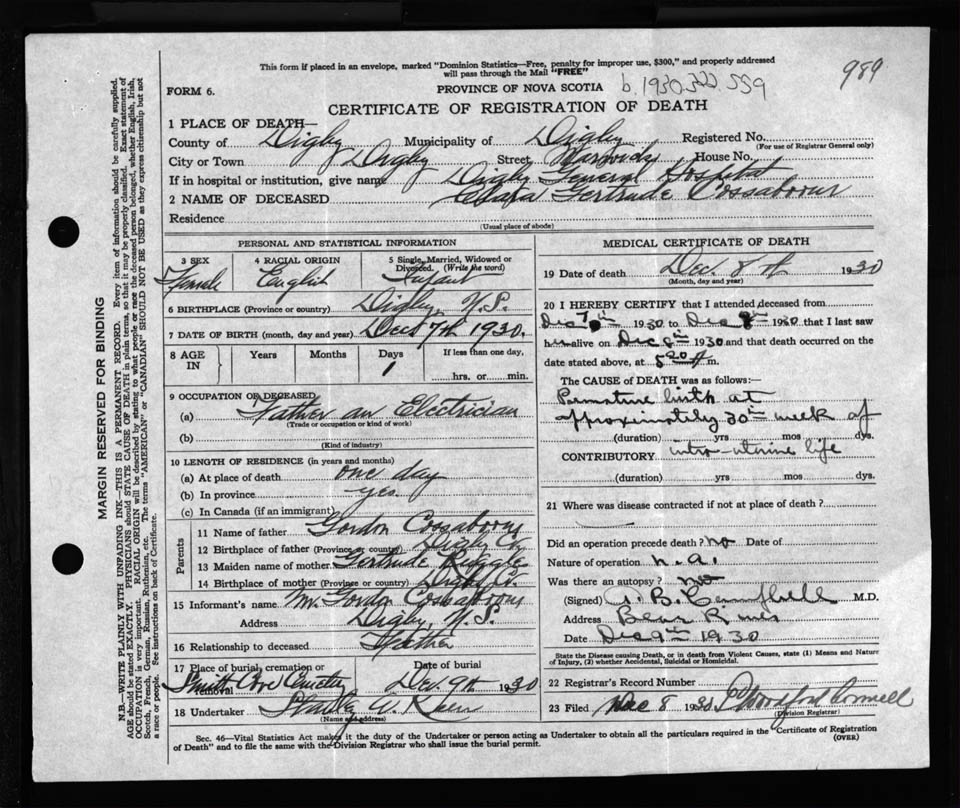 This form if placed in an envelope, marked "Dominion Statistics—Free, penalty for improper use, $300," and properly addressed
will pass through the Mail "FREE"
989
FORM 6.
PROVINCE OF NOVA SCOTIA
b. 1930.322.559
CERTIFICATE OF REGISTRATION OF DEATH
1 PLACE OF DEATH—
County of Digby Municipality of Digby Registered No.
(For use of Registrar General only)
City or Town Digby Street House No.
If in hospital or institution, give name Digby General Hospital
2 NAME OF DECEASED Gertrude Cossaboom
Residence
(Usual place of abode)
PERSONAL AND STATISTICAL INFORMATION
3 SEX 4 RACIAL ORIGIN 5 Single, Married, Widowed or
Divorced. (Write the word)
Female English Infant
6 BIRTHPLACE (Province or country) Digby, N.S.
7 DATE OF BIRTH (month, day and year) Dec 7th 1930.
8 AGE IN Years Months Days If less than one day,
1 hrs. or min.
9 OCCUPATION OF DECEASED
(a) Father an Electrician
(Trade or occupation or kind of work)
(b)
(Kind of industry)
10 LENGTH OF RESIDENCE (in years and months)
(a) At place of death one day
(b) In province yes.
(c) In Canada (if an immigrant)
Parents
11 Name of father Gordon Cossaboom
12 Birthplace of father (Province or country) Digby Co.
13 Maiden name of mother Gertrude Ruggles
14 Birthplace of mother (Province or country) Digby
15 Informant's name Mr. Gordon Cossaboom
Address Digby, N.S.
16 Relationship to deceased Father
17 Place of burial, cremation or removal Date of burial
Smith Cove Cemetery Dec. 9th 1930
18 Undertaker Stanley
(Name and address)
MEDICAL CERTIFICATE OF DEATH
19 Date of death Dec 8th 1930
(Month, day and year)
20 I HEREBY CERTIFY that I attended deceased from
Dec 7th 1930 to Dec 8th 1930 that I last saw
h alive on Dec 8th 1930 and that death occurred on the
date stated above, at 5 20 m.
The CAUSE OF DEATH was as follows:—
Premature birth at
approximately 30th week of
(duration) yrs mos dys.
CONTRIBUTORY intra-uterine life
(duration) yrs mos dys.
21 Where was disease contracted if not at place of death?
Did an operation precede death? No Date of
Nature of operation n.a.
Was there an autopsy? No
(Signed) A. B. Campbell M.D.
Address Bear River
Date Dec 9th 1930
State the Disease causing Death, or in death from Violent Causes, state (1) Means and Nature
of Injury, (2) whether Accidental, Suicidal or Homicidal.
22 Registrar's Record Number
23 Filed Dec 8 1930
(Division Registrar)
Sec. 46—Vital Statistics Act makes it the duty of the Undertaker or person acting as Undertaker to obtain all the particulars required in the "Certificate of Registration
of Death" and to file the same with the Division Registrar who shall issue the burial permit.
(OVER)
MARGIN RESERVED FOR BINDING
N.B.—WRITE PLAINLY WITH UNFADING INK—THIS IS A PERMANENT RECORD. Every item of information should be carefully supplied.
AGE should be stated EXACTLY. PHYSICIANS should STATE CAUSE OF DEATH in plain terms, so that it may be properly classified. Exact statement of
OCCUPATION is very important. RACIAL ORIGIN will be described by stating to what people or race the deceased person belonged, whether English, Irish,
Scotch, French, German, Russian, Ruthenian, etc. The terms "AMERICAN" or "CANADIAN" SHOULD NOT BE USED as they express citizenship but not
a race or people. See instructions on back of Certificate.